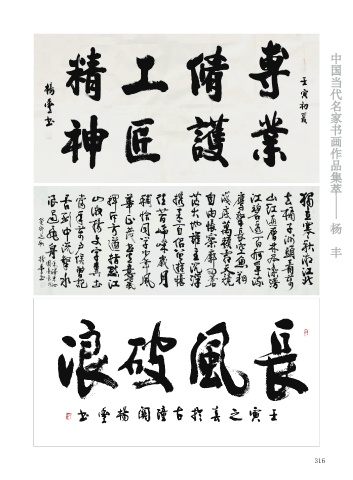 中国当代名家书画作品集萃——杨 丰
壬寅初夏
專業
脩護
工匠
精神
楊豐書
獨立寒秋湘江北
去橘子洲頭看萬
山紅遍層林盡染漫
江碧透百舸爭流
鷹擊長空魚翔
淺底萬類霜天競
自由悵寥廓問蒼
茫大地誰主沉浮
攜來百侶曾遊憶
往昔崢嶸歲月
稠恰同學少年風
華正茂書生意氣
揮斥方遒指點江
山激揚文字糞土
當年萬戶侯曾記
否到中流擊水
浪遏飛舟
楊豐書
長風破浪
壬寅之春於古潼關楊豐書
316